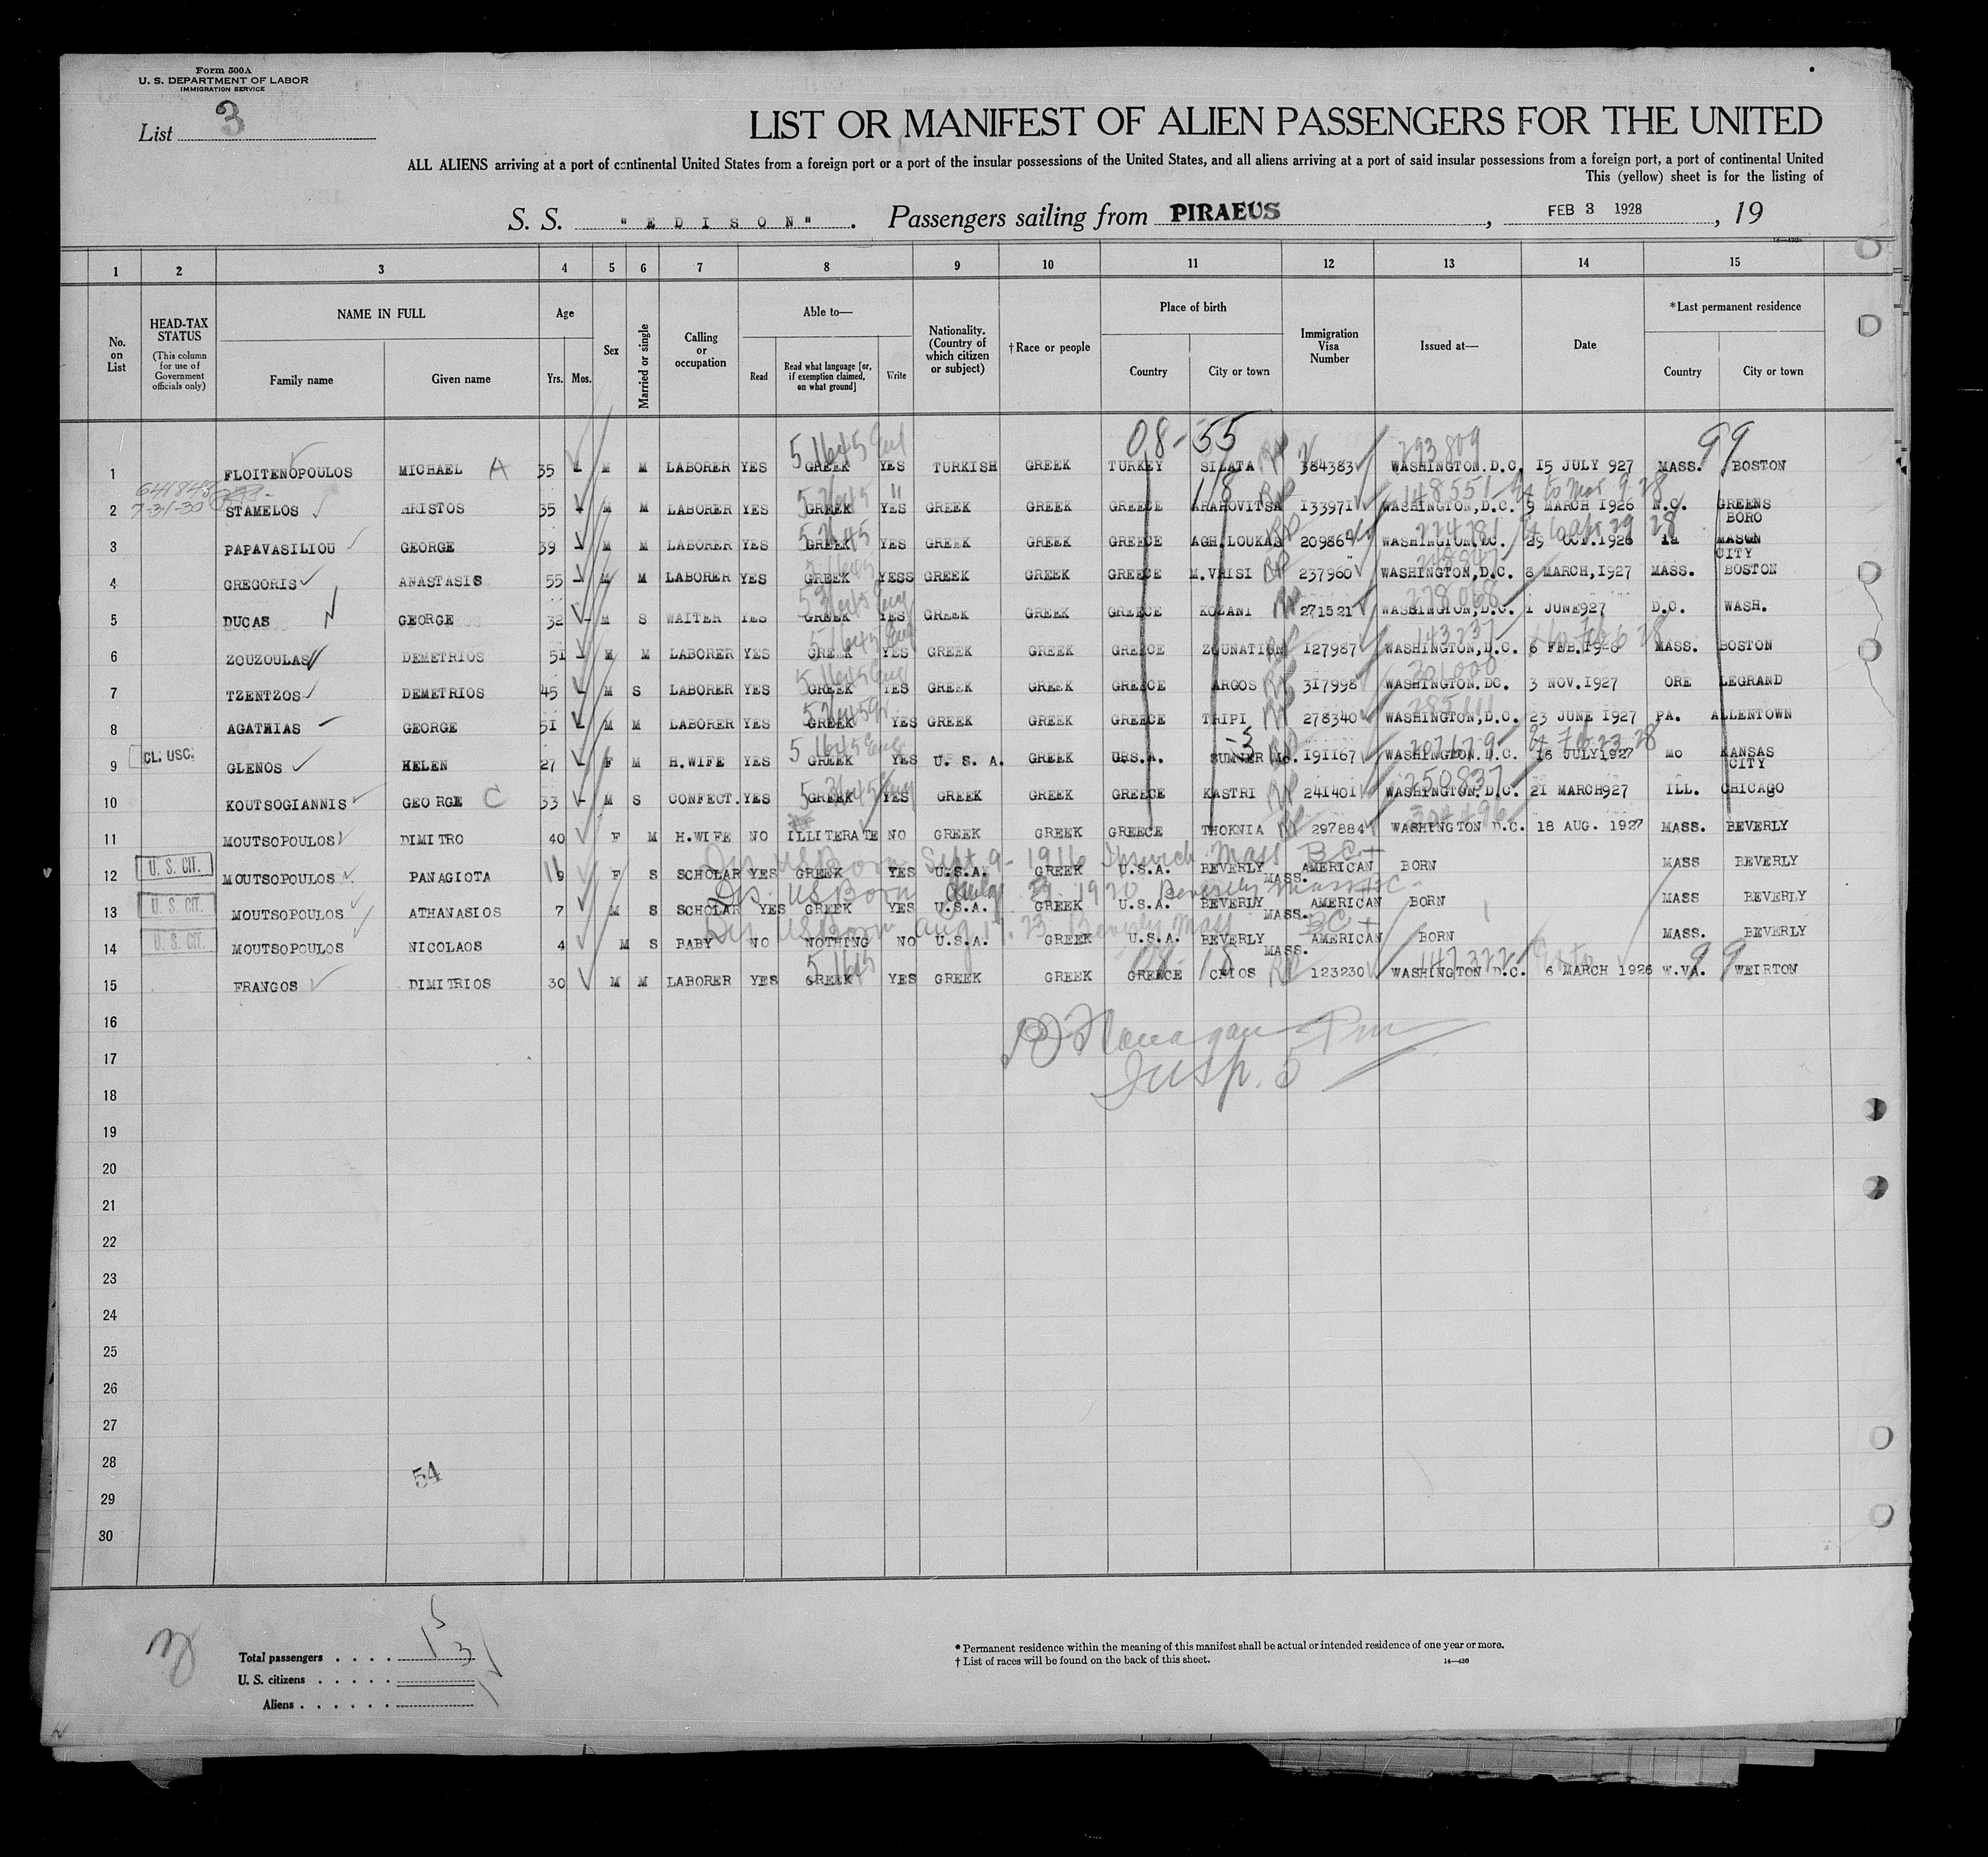 Form 500A
U. S. DEPARTMENT OF LABOR
IMMIGRATION SERVICE
List 3
LIST OR MANIFEST OF ALIEN PASSENGERS FOR THE UNITED
ALL ALIENS arriving at a port of continental United States from a foreign port or a port of the insular possessions of the United States, and all aliens arriving at a port of said insular possessions from a foreign port, a port of continental United
This (yellow) sheet is for the listing of
S. S. "EDISON". Passengers sailing from PIRAEUS, FEB 3 1928, 19
1 2 3 4 5 6 7 8 9 10 11 12 13 14 15
No. on List
HEAD-TAX STATUS
(This column for use of Government officials only)
NAME IN FULL
Family name
Given name
Age
Yrs. Mos.
Sex
Married or single
Calling or occupation
Able to—
Read
Read what language [or, if exemption claimed, on what ground]
Write
Nationality. (Country of which citizen or subject)
† Race or people
Place of birth
Country
City or town
Immigration Visa Number
Issued at—
Date
*Last permanent residence
Country
City or town
08-55 99
293809
1 FLOITENOPOULOS MICHAEL A 35 - M M LABORER YES GREEK YES TURKISH GREEK TURKEY SILATA 384383 WASHINGTON.D.C. 15 JULY 927 MASS. BOSTON
641848
7-31-30
18 148551 to Mar 9 28
2 STAMELOS HRISTOS 35 - M M LABORER YES GREEK YES GREEK GREEK GREECE ARAHOVITSA 133971 WASHINGTON,D.C. 9 MARCH 1926 N.C. GREENS BORO
3 PAPAVASILIOU GEORGE 39 - M M LABORER YES GREEK YES GREEK GREEK GREECE AGH.LOUKAS 20986 WASHINGTON.DC. 29 OCT.1926 Ia MASON CITY
4 GREGORIS ANASTASIS 55 - M M LABORER YES GREEK YESS GREEK GREEK GREECE M.VRISI 237960 WASHINGTON,D.C. 8 MARCH,1927 MASS. BOSTON
278068
5 DUCAS GEORGE 32 - M S WAITER YES GREEK YES GREEK GREEK GREECE KOZANI 271521 WASHINGTON,D.C. 1 JUNE927 D.C. WASH.
143237
6 ZOUZOULAS DEMETRIOS 51 - M M LABORER YES GREEK YES GREEK GREEK GREECE ZOUNATION 127987 WASHINGTON,D.C. 6 FEB.1926 MASS. BOSTON
301000
7 TZENTZOS DEMETRIOS 45 - M S LABORER YES GREEK YES GREEK GREEK GREECE ARGOS 317998 WASHINGTON.DC. 3 NOV.1927 ORE LEGRAND
8 AGATHIAS GEORGE 51 - M M LABORER YES GREEK YES GREEK GREEK GREECE TRIPI 278340 WASHINGTON,D.C. 23 JUNE 1927 PA. ALLENTOWN
207679 Feb 23 28
CL. USC.
9 GLENOS HELEN 27 - F M H.WIFE YES GREEK YES U. S. A. GREEK U.S.A. SUMNER Mo. 191167 WASHINGTON.D.C. 16 JULY1927 Mo KANSAS CITY
250837
10 KOUTSOGIANNIS GEORGE C 33 - M S CONFECT. YES GREEK YES GREEK GREEK GREECE KASTRI 241401 WASHINGTON,D.C. 21 MARCH927 ILL. CHICAGO
304496
11 MOUTSOPOULOS DIMITRO 40 F M H.WIFE NO ILLITERATE NO GREEK GREEK GREECE THOKNIA 297884 WASHINGTON D.C. 18 AUG. 1927 MASS. BEVERLY
US Born Sept. 9- 1916 Ipswich Mass B.C.
U. S. CIT.
12 MOUTSOPOULOS PANAGIOTA 11 F S SCHOLAR YES GREEK YES U.S.A. GREEK U.S.A. BEVERLY MASS. AMERICAN BORN MASS BEVERLY
US Born July 29 1920 Beverly Mass BC
U. S. CIT.
13 MOUTSOPOULOS ATHANASIOS 7 M S SCHOLAR YES GREEK YES U.S.A. GREEK U.S.A. BEVERLY MASS. AMERICAN BORN MASS BEVERLY
US Born Aug 17. 23 Beverly Mass BC
U. S. CIT.
14 MOUTSOPOULOS NICOLAOS 4 M S BABY NO NOTHING NO U.S.A. GREEK U.S.A. BEVERLY MASS. AMERICAN BORN MASS. BEVERLY
08-18 147322 99
15 FRANGOS DIMITRIOS 30 M M LABORER YES GREEK YES GREEK GREEK GREECE CHIOS 123230 WASHINGTON D.C. 6 MARCH 1926 W.VA. WEIRTON
16
Flanagan
17
Insp.
18
19
20
21
22
23
24
25
26
27
28
54
29
30
Total passengers . . . . 15
3
U. S. citizens . . . . .
Aliens . . . . . .
* Permanent residence within the meaning of this manifest shall be actual or intended residence of one year or more.
† List of races will be found on the back of this sheet.
14—430